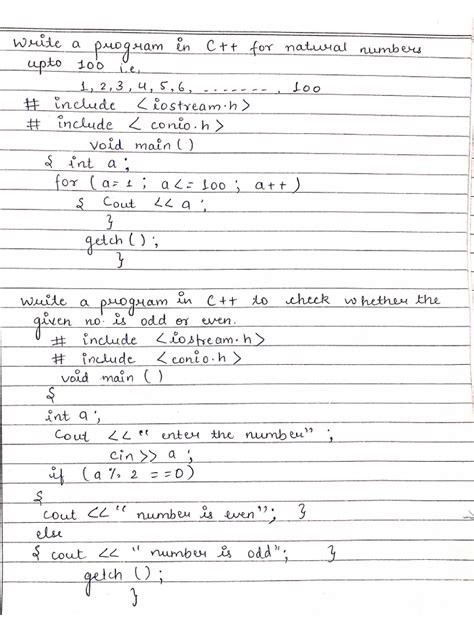 Write a program in C++ for natural numbers
upto 100 i.e,
1, 2, 3, 4, 5, 6, ........, 100
# include <iostream.h>
# include < conio.h>
void main ( )
{ int a ;
for ( a= 1 ; a<= 100 ; a++ )
{ Cout << a ;
}
getch ( ) ;
}
Write a program in C++ to check whether the
given no. is odd or even.
# include <iostream.h>
# include <conio.h>
void main ( )
{
int a ;
Cout << " enter the number" ;
cin >> a ;
if (a % 2 ==0)
{
cout << " number is even"; }
else
{ cout << " number is odd"; }
getch ( ) ;
}